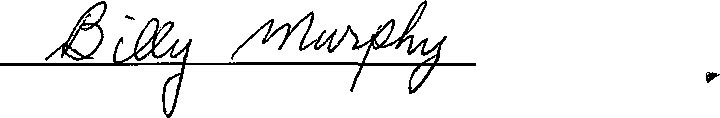 Billy Murphy